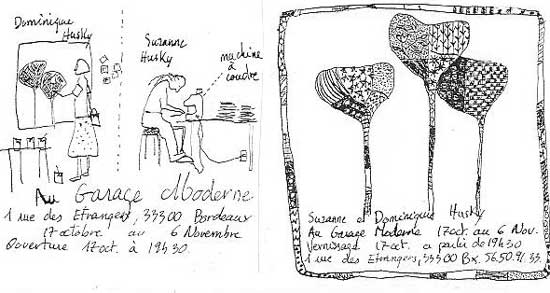 Dominique
Husky
Suzanne
Husky
machine
à
coudre
Au Garage Moderne
1 rue des Etrangers, 33300 Bordeaux
17 octobre au 6 Novembre
Ouverture 17 oct. à 19h30
Suzanne et Dominique Husky
Au Garage Moderne 17 oct. au 6 Nov.
Vernissage 17 oct. a partir de 19h30
1 rue des Etrangers, 33300 Bx. 56.50.91.33.